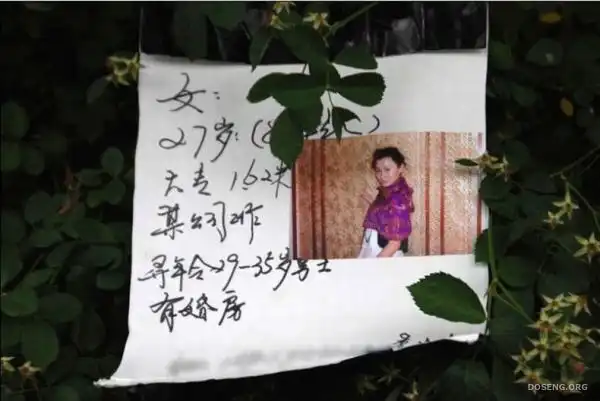 女:
27岁:(
大专 1.62米
某公司工作
寻年令29-35岁男士
有婚房
DOSENG.ORG